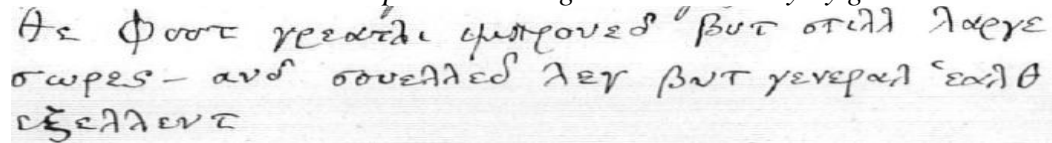 θε Φοοτ γρεατλι ιμπρουεδ βυτ στιλλ λαργε
σωρες – ανδ σουελλεδ λεγ βυτ γενεραλ ῾εαλθ
εξελλεντ